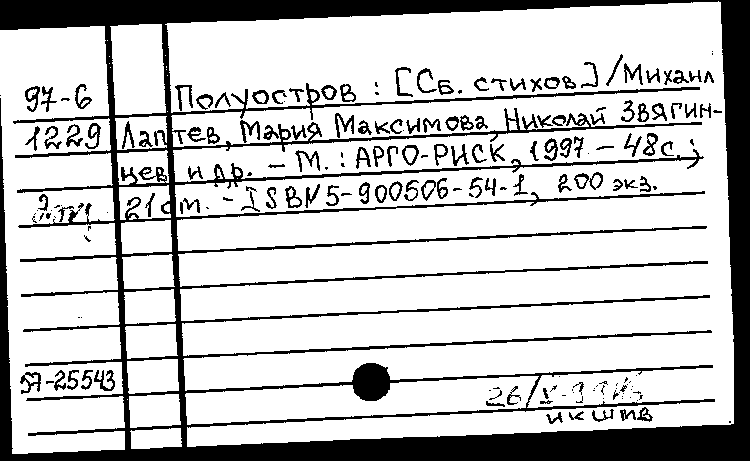 97-6 Полуостров : [Сб. стихов] / Михаил
1229 Лаптев, Мария Максимова, Николай Звягин-
цев и др. - М. : АРГО-РИСК, 1997 - 48с.;
21 cm. - ISBN 5-900506-54-1, 200 экз.
57-25543
26/V-99